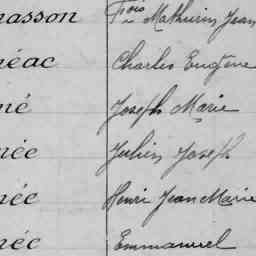 nasson Fcois Mathurin Jean
néac Charles Eugène
né Joseph Marie
née Julien Joseph
née Henri Jean Marie
née Emmanuel